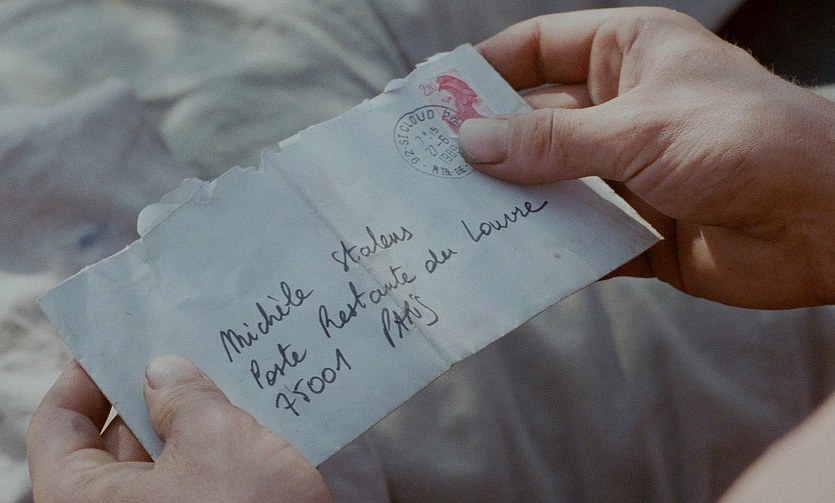 92 ST CLOUD
1989
Michèle Stalens
Poste Restante du Louvre
75001 PARIS